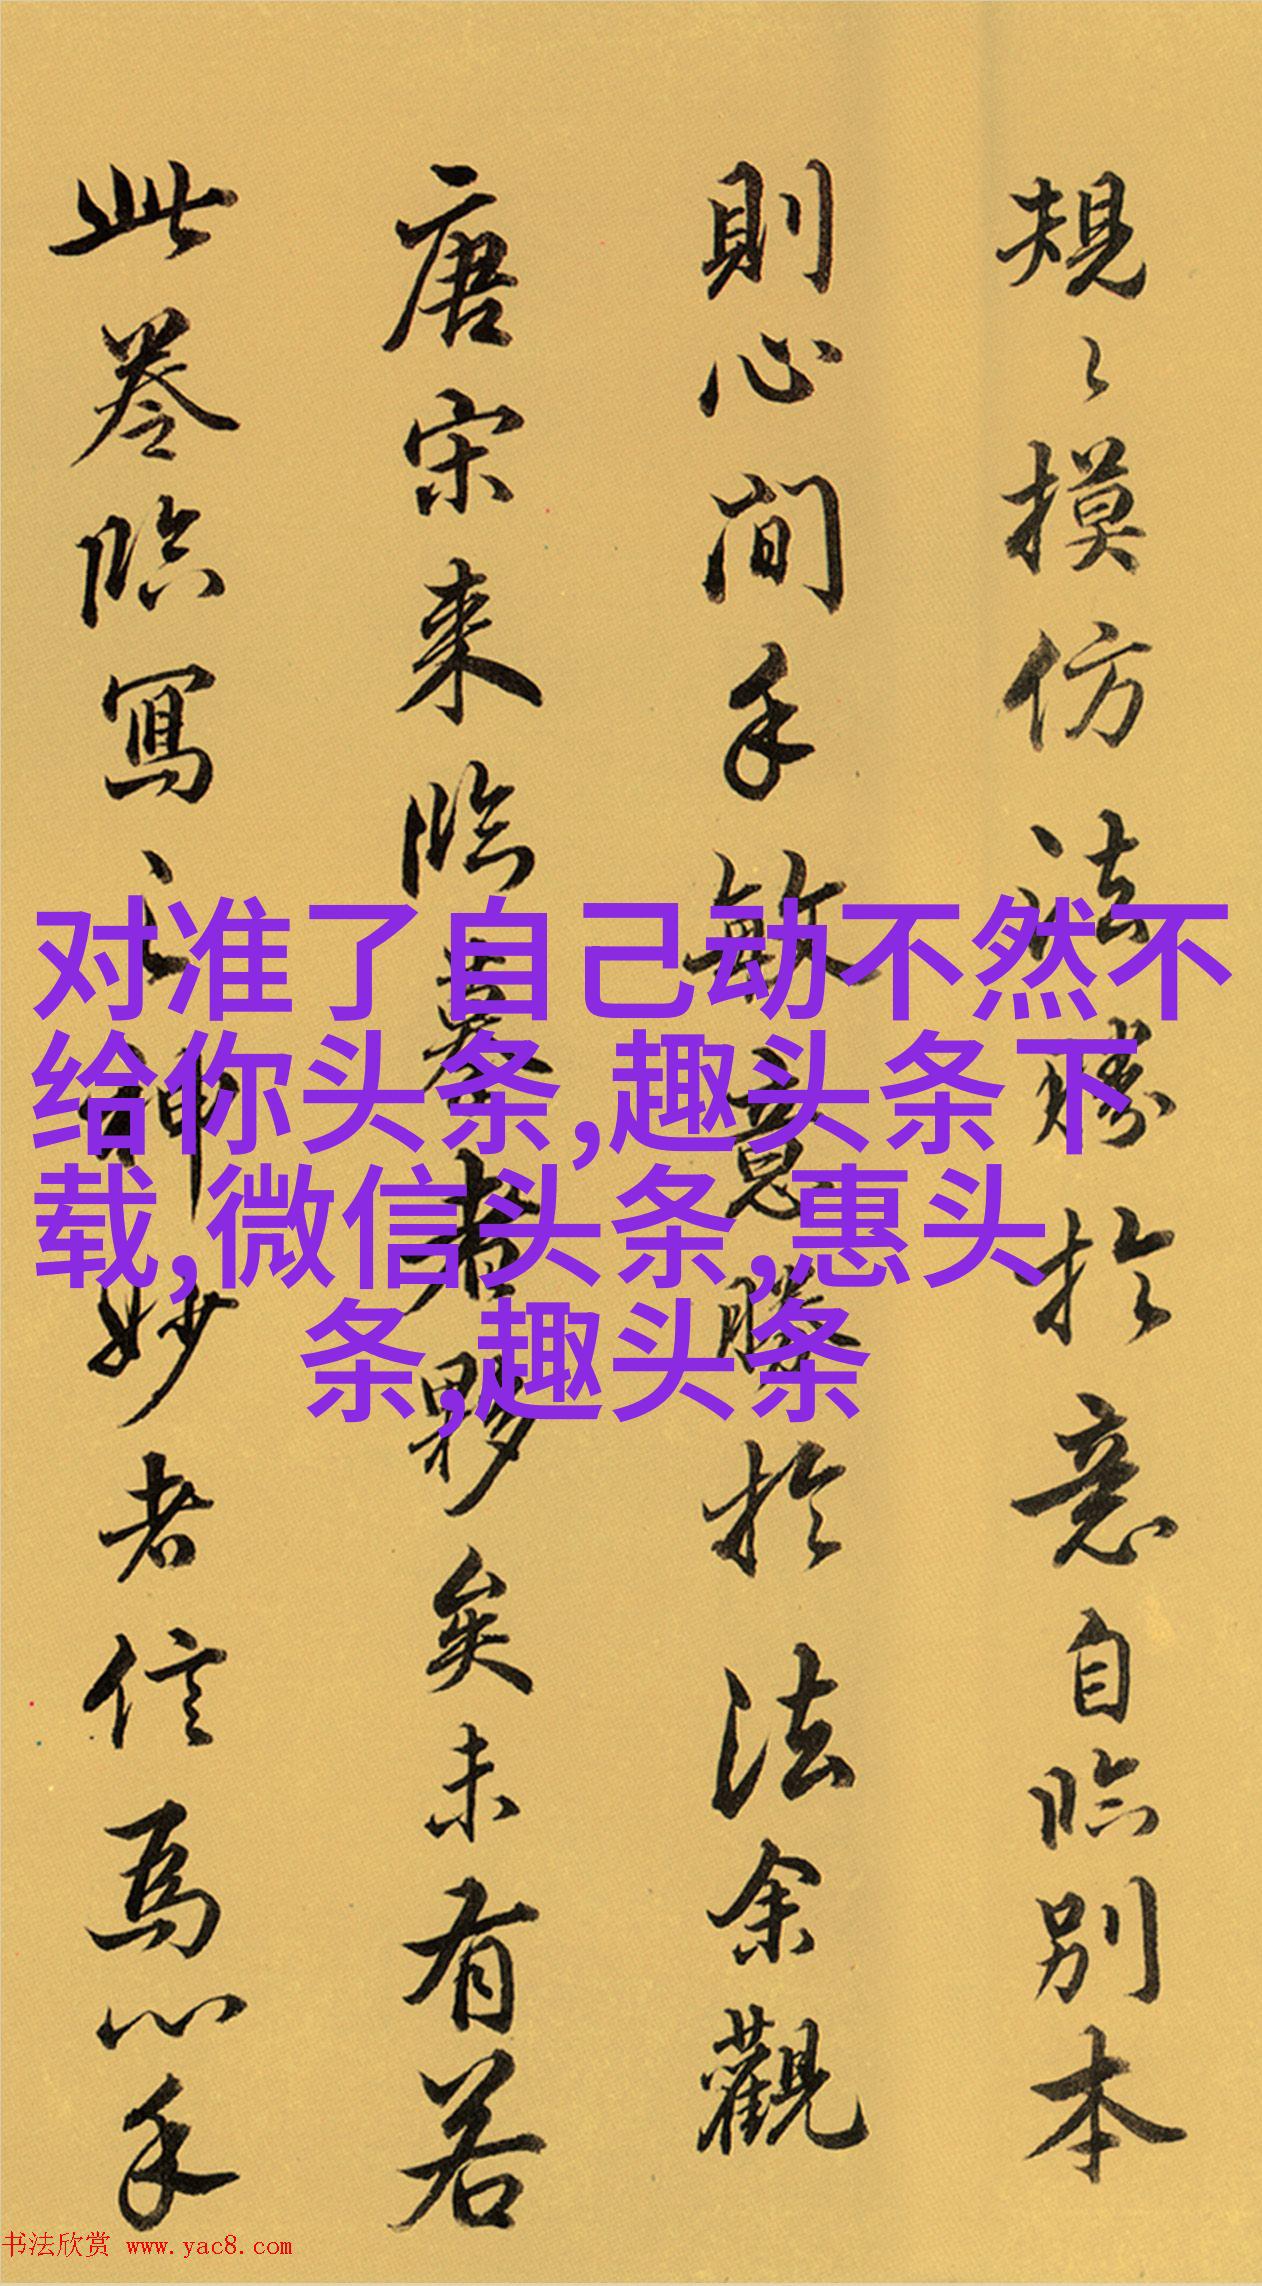 規〻摸仿法勝於意自临别本
則心間手敏意勝於法余觀
唐宋来临摹者夥矣未有若
此卷临寫之神妙者信為心手
对准了自己动不然不
给你头条,趣头条下
载,微信头条,惠头
条,趣头条
书法欣赏 www.yac8.com